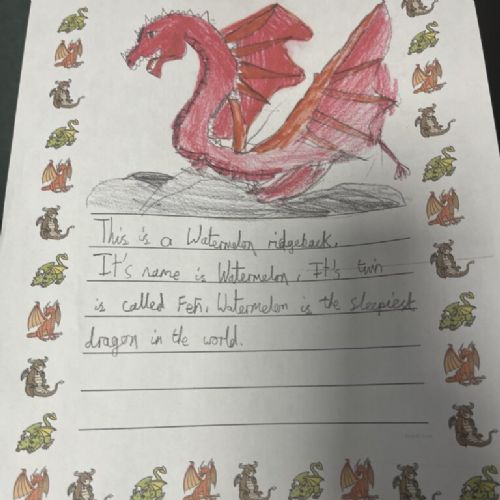 This is a Watermelon ridgeback.
It's name is Watermelon. It's twin
is called Fefi. Watermelon is the sleepiest
dragon in the world.